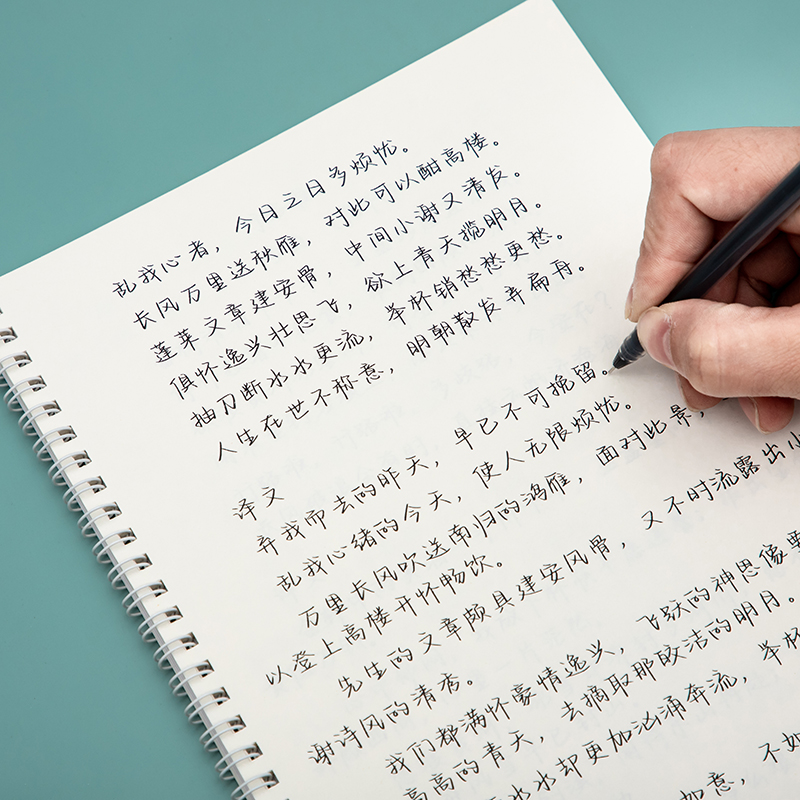 乱我心者，今日之日多烦忧。
长风万里送秋雁，对此可以酣高楼。
蓬莱文章建安骨，中间小谢又清发。
俱怀逸兴壮思飞，欲上青天揽明月。
抽刀断水水更流，举杯销愁愁更愁。
人生在世不称意，明朝散发弄扁舟。
译文
弃我而去的昨天，早已不可挽留。
乱我心绪的今天，使人无限烦忧。
万里长风吹送南归的鸿雁，面对此景，
以登上高楼开怀畅饮。
先生的文章颇具建安风骨，又不时流露出小
谢诗风的清秀。
我们都满怀豪情逸兴，飞跃的神思像要
高高的青天，去摘取那皎洁的明月。
水水却更加汹涌奔流，举杯
如意，不如